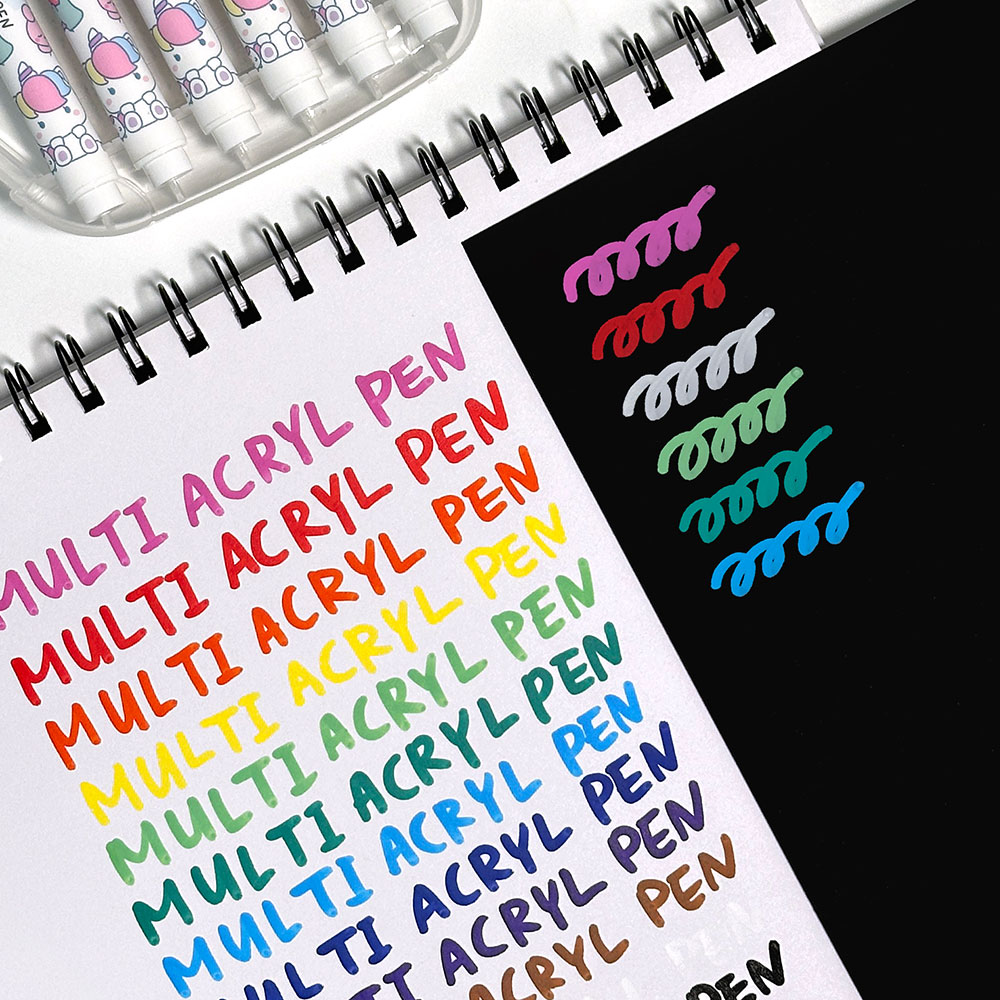 PEN
MULTI ACRYL PEN
MULTI ACRYL PEN
MULTI ACRYL PEN
MULTI ACRYL PEN
MULTI ACRYL PEN
MULTI ACRYL PEN
MULTI ACRYL PEN
MULTI ACRYL PEN
MULTI ACRYL PEN
ACRYL PEN
PEN
PEN